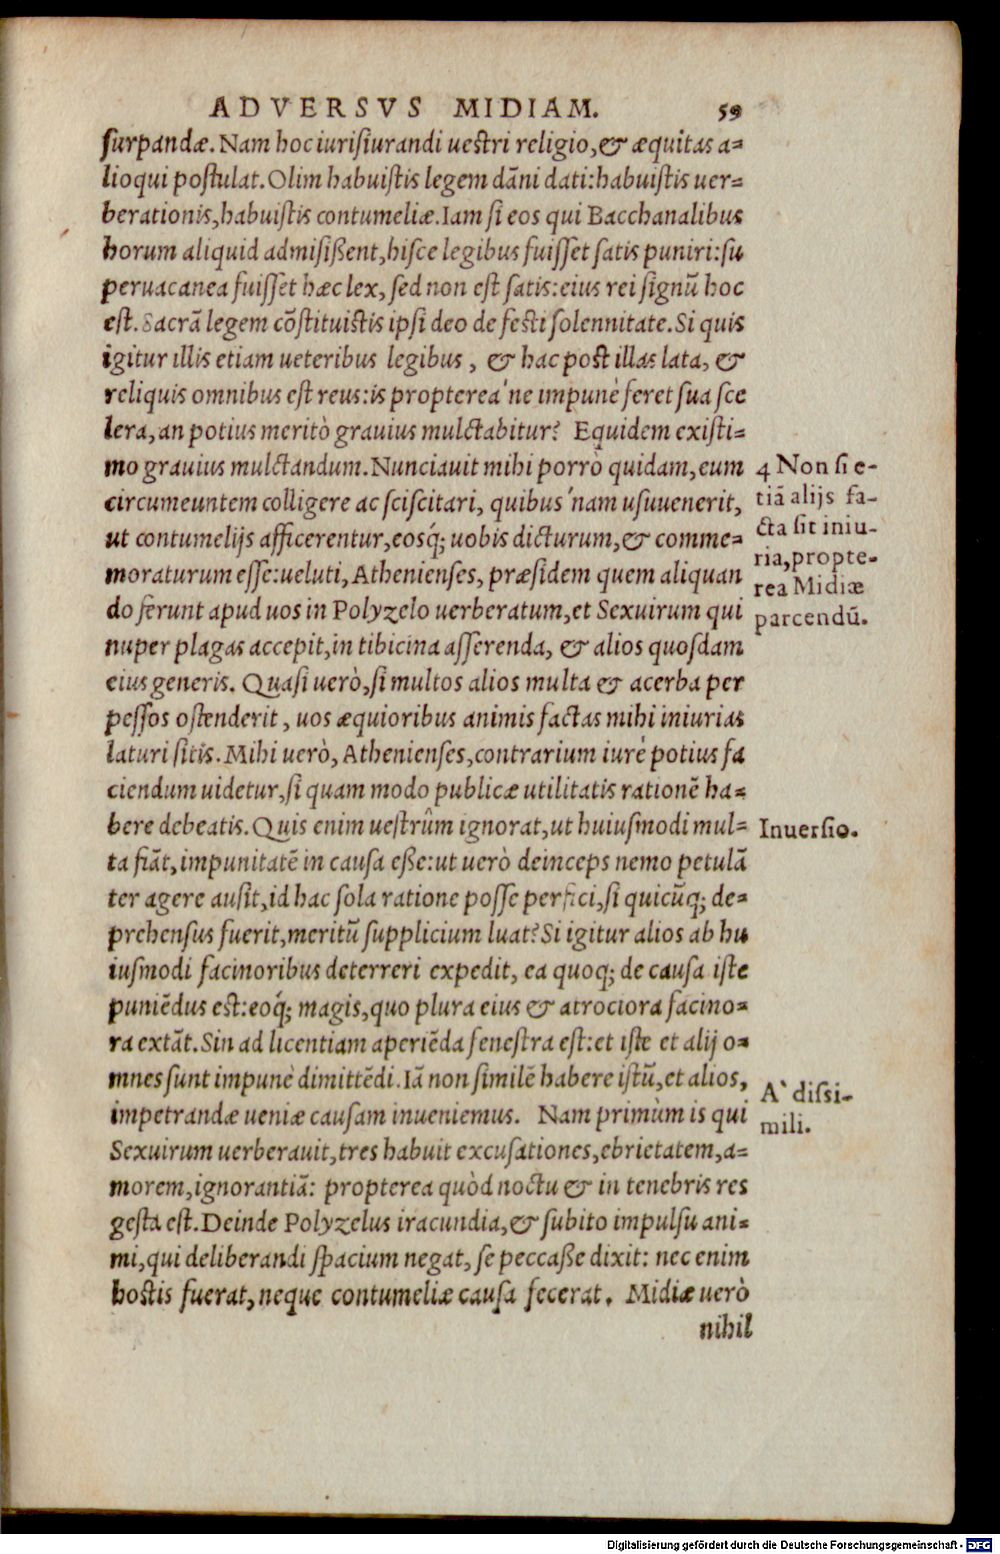 ADVERSVS MIDIAM. 59
surpandæ. Nam hoc iurisiurandi uestri religio, & æquitas a=
lioqui postulat. Olim habuistis legem dãni dati: habuistis uer=
berationis, habuistis contumeliæ. Iam si eos qui Bacchanalibus
horum aliquid admisißent, hisce legibus fuisset satis puniri: su
peruacanea fuisset hæc lex, sed non est satis: eius rei signũ hoc
est. Sacrã legem cõstituistis ipsi deo de festi solennitate. Si quis
igitur illis etiam ueteribus legibus, & hac post illas lata, &
reliquis omnibus est reus: is propterea´ne impunè feret sua sce
lera, an potius meritò grauius mulctabitur? Equidem existi=
mo grauius mulctandum. Nunciauit mihi porrò quidam, eum
circumeuntem colligere ac sciscitari, quibus´nam usuuenerit,
ut contumelijs afficerentur, eosq́; uobis dicturum, & comme=
moraturum esse: ueluti, Athenienses, præsidem quem aliquan
do ferunt apud uos in Polyzelo uerberatum, et Sexuirum qui
nuper plagas accepit, in tibicina asserenda, & alios quosdam
eius generis. Quasi uerò, si multos alios multa & acerba per
pessos ostenderit, uos æquioribus animis factas mihi iniurias
laturi sitis. Mihi uerò, Athenienses, contrarium iurè potius fa
ciendum uidetur, si quam modo publicæ utilitatis rationẽ ha=
bere debeatis. Quis enim uestrûm ignorat, ut huiusmodi mul=
ta fiãt, impunitatẽ in causa eße: ut uerò deinceps nemo petulã
ter agere ausit, id hac sola ratione posse perfici, si quicũq; de=
prehensus fuerit, meritũ supplicium luat? Si igitur alios ab hu
iusmodi facinoribus deterreri expedit, ea quoq; de causa iste
puniẽdus est: eoq́; magis, quo plura eius & atrociora facino=
ra extãt. Sin ad licentiam aperiẽda fenestra est: et iste et alij o=
mnes sunt impunè dimittẽdi. Iã non similẽ habere istũ, et alios,
impetrandæ ueniæ causam inueniemus. Nam primùm is qui
Sexuirum uerberauit, tres habuit excusationes, ebrietatem, a=
morem, ignorantiã: propterea quòd noctu & in tenebris res
gesta est. Deinde Polyzelus iracundia, & subito impulsu ani=
mi, qui deliberandi spacium negat, se peccaße dixit: nec enim
hostis fuerat, neque contumeliæ causa fecerat. Midiæ uerò
nihil
4 Non si e-
tiã alijs fa-
cta sit iniu-
ria, propte-
rea Midiæ
parcendũ.
Inuersio.
A` dissi-
mili.
Digitalisierung gefördert durch die Deutsche Forschungsgemeinschaft - DFG